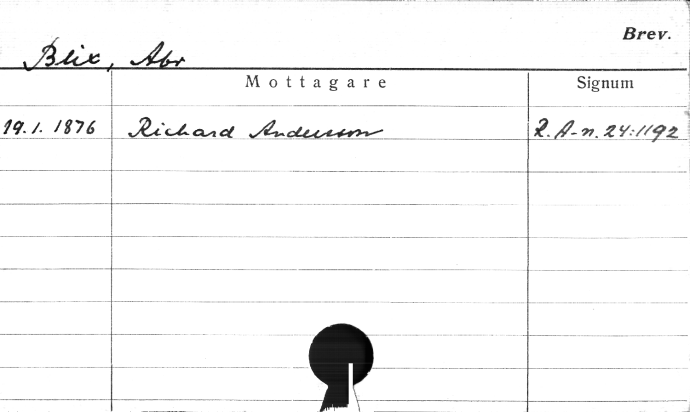 Brev.
Blix, Abr
Mottagare Signum
19.1.1876 Richard Andersson R. A-n. 24:1192